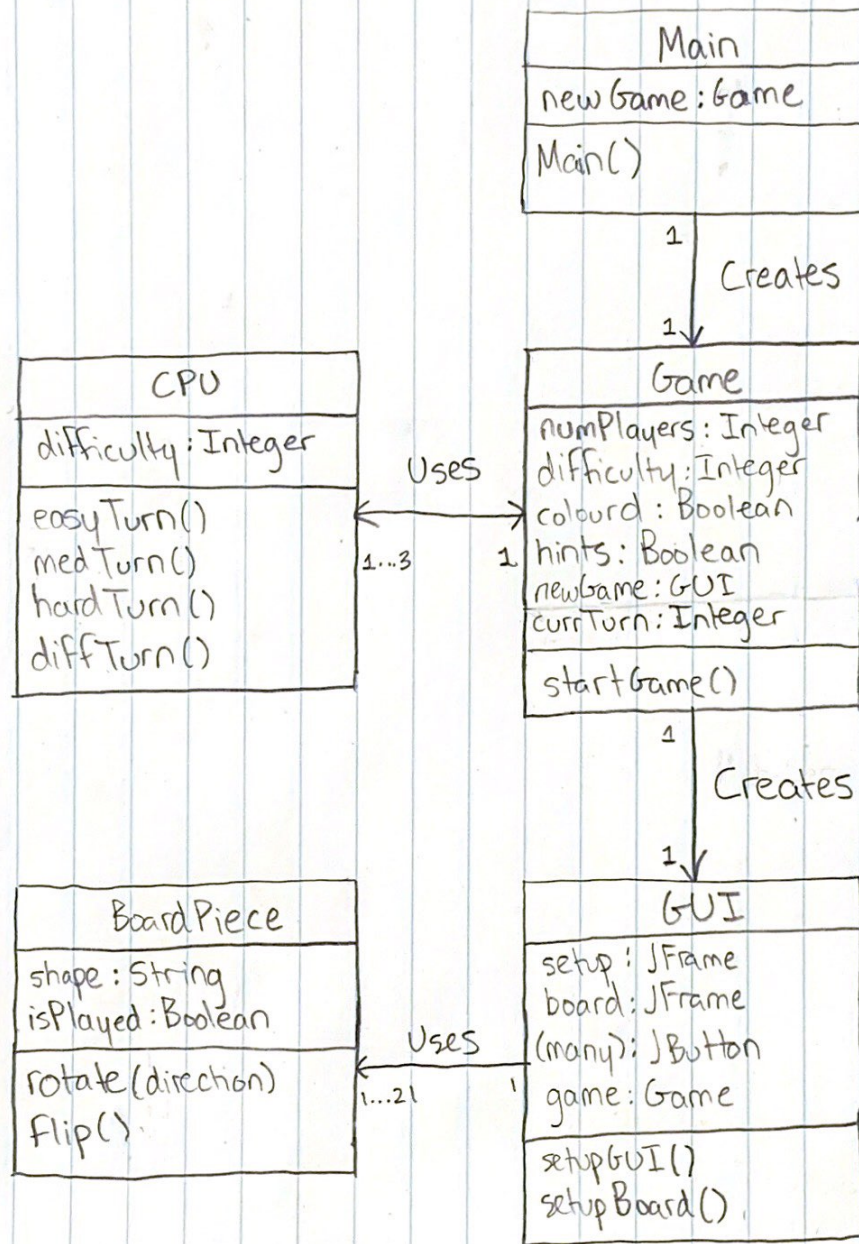 Main
newGame: Game
Main()
1
Creates
1
CPU
difficulty: Integer
easyTurn()
medTurn()
hardTurn()
diffTurn()
Uses
1...3
1
Game
numPlayers: Integer
difficulty: Integer
colourd: Boolean
hints: Boolean
newGame: GUI
currTurn: Integer
startGame()
1
Creates
1
BoardPiece
shape: String
isPlayed: Boolean
rotate(direction)
flip()
Uses
1...21
1
GUI
setup: JFrame
board: JFrame
(many): JButton
game: Game
setupGUI()
setupBoard()